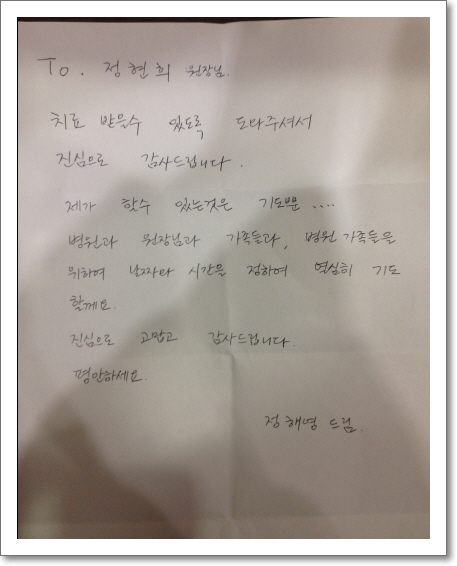 To. 정현희 원장님.
치료 받을수 있도록 도와주셔서
진심으로 감사드립니다.
제가 핫수 있는것은 기도뿐....
병원과 원장님과 가족들과, 병원 가족들을
위하여 날짜와 시간을 정하여 열심히 기도
할께요.
진심으로 고맙고 감사드립니다.
평안하세요.
정해영 드림.